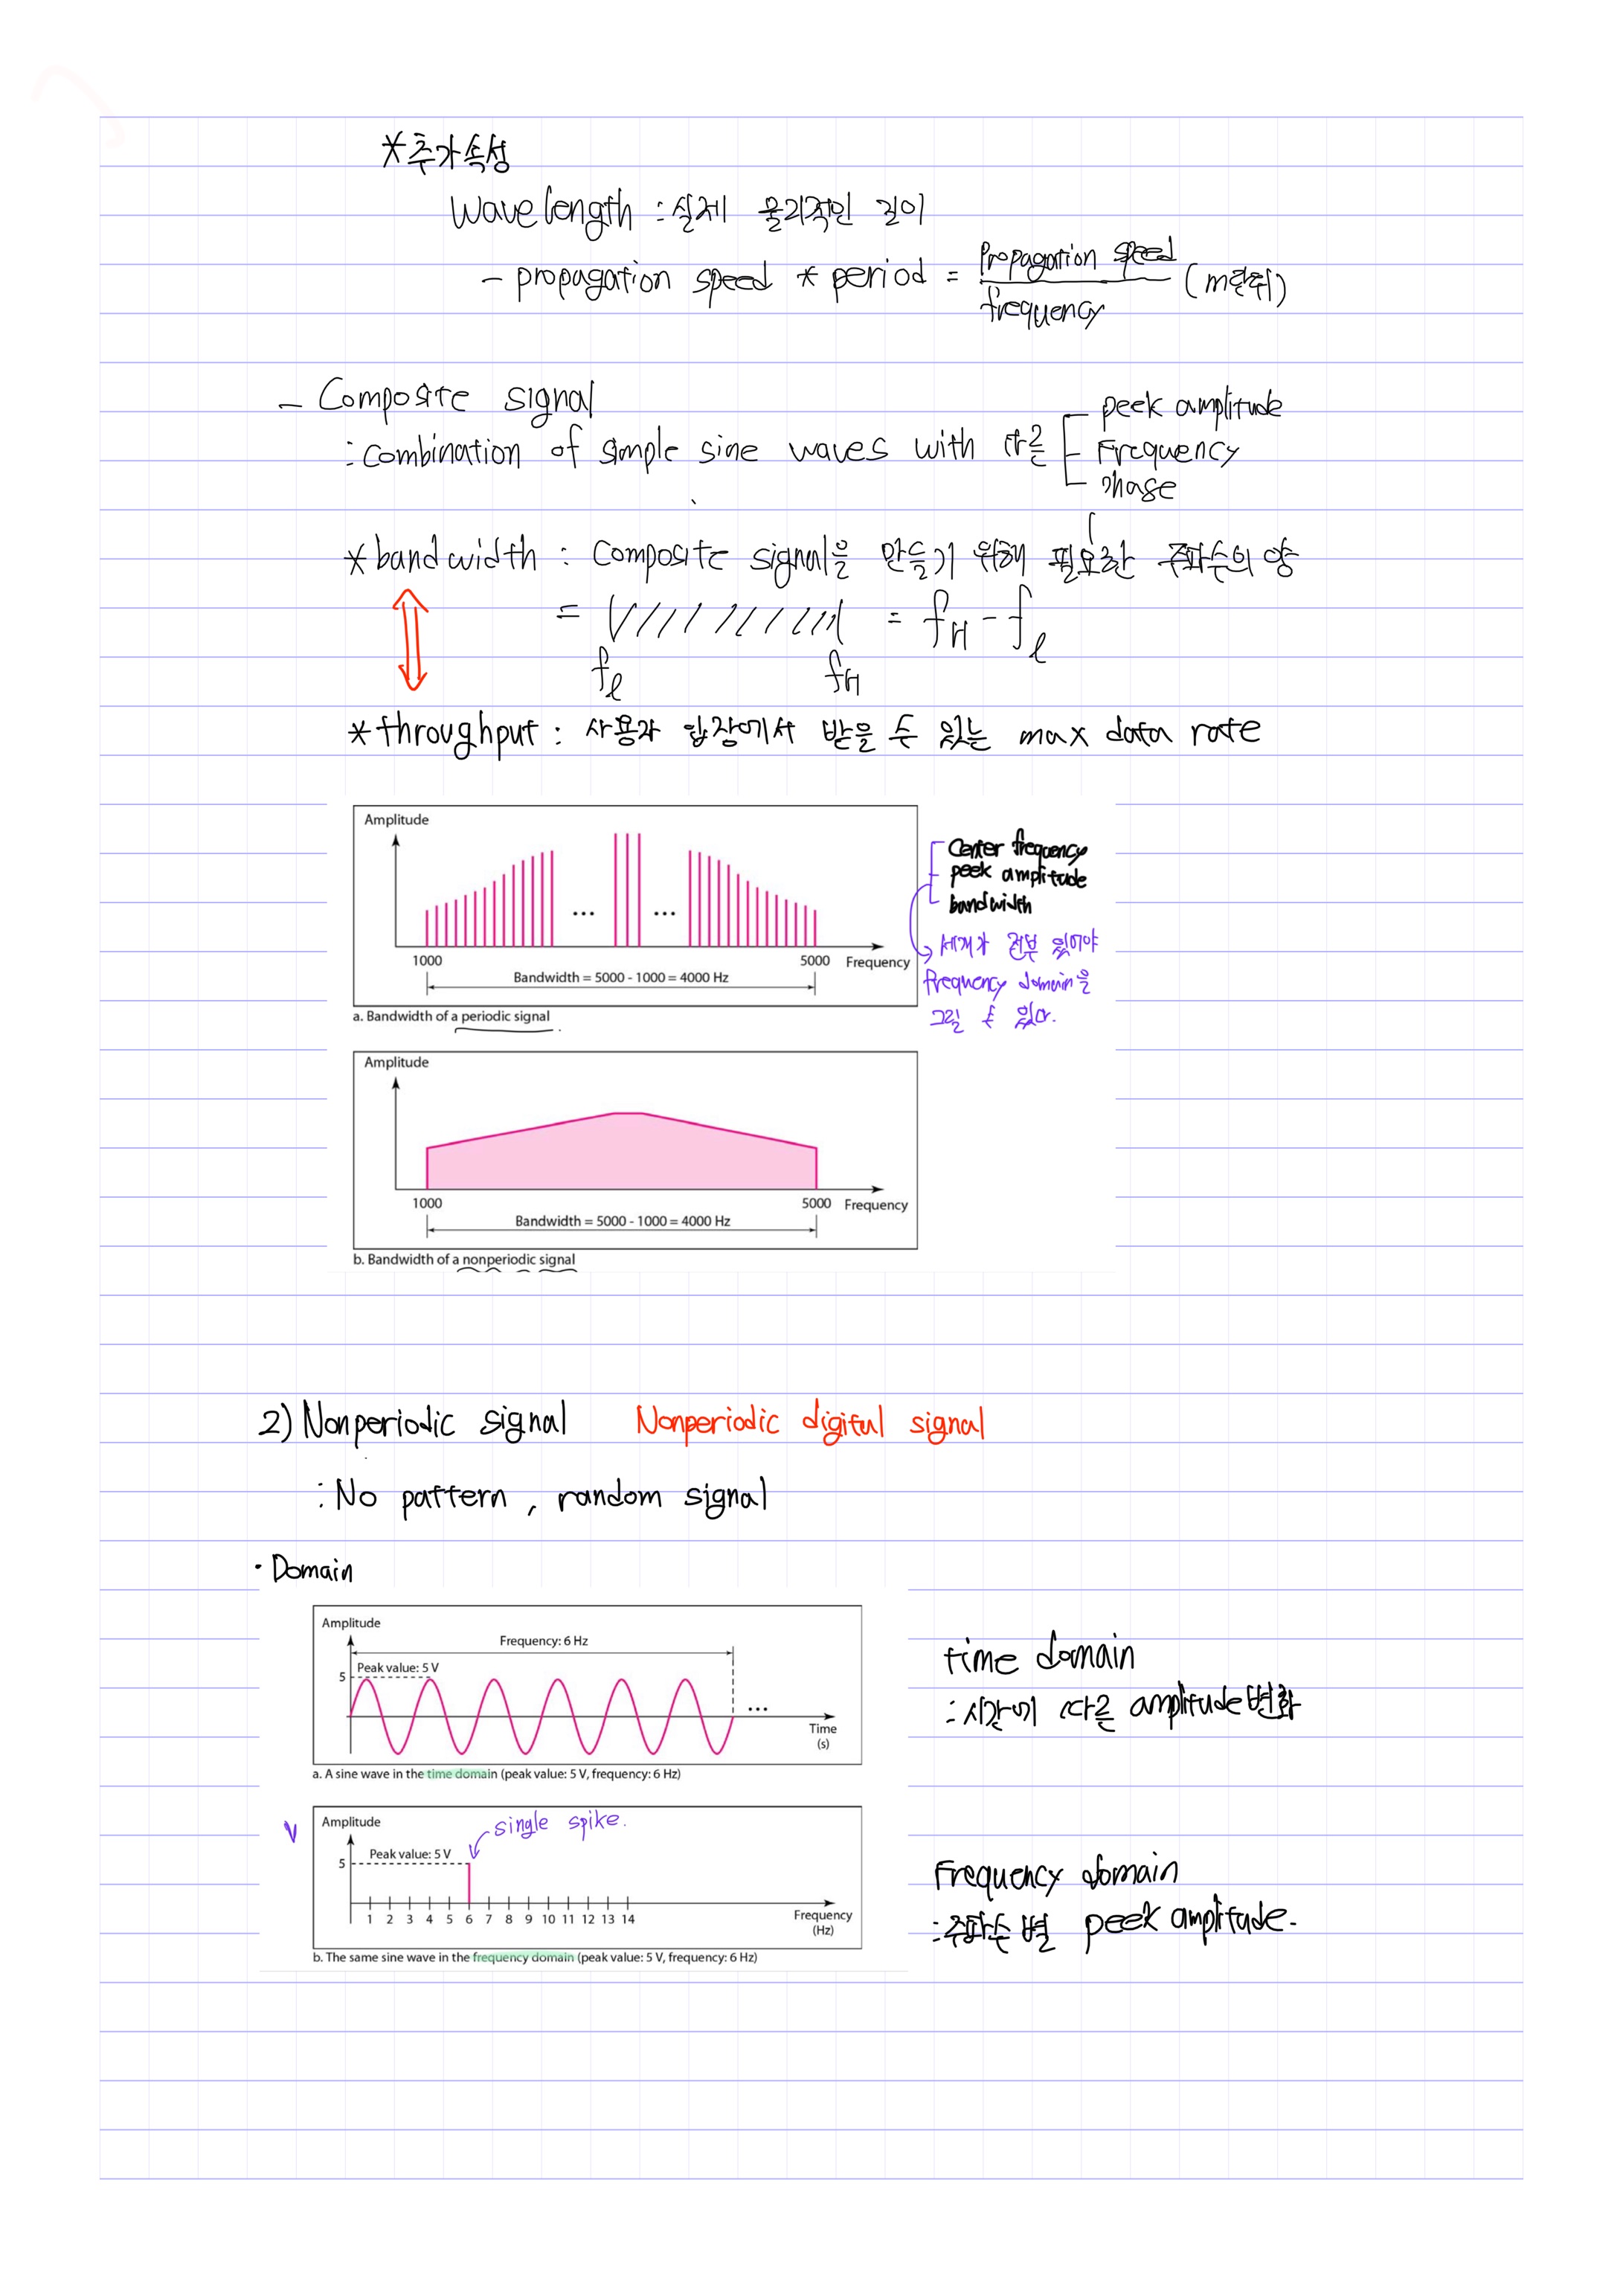 *추가속성
Wavelength : 실제 물리적인 길이
- propagation speed * period = propagation speed / frequency (m단위)
- Composite signal
: combination of simple sine waves with 다른 [ peek amplitude
Frequency
phase
* bandwidth : Composite signal을 만들기 위해 필요한 주파수의 양
= = fH - fl
fl fH
* throughput : 사용자 입장에서 받을 수 있는 max data rate
Amplitude
... ...
1000 5000 Frequency
Bandwidth = 5000 - 1000 = 4000 Hz
a. Bandwidth of a periodic signal
Center frequency
peek amplitude
bandwidth
→ 세개가 전부 있어야
frequency domain을
그릴 수 있다.
Amplitude
1000 5000 Frequency
Bandwidth = 5000 - 1000 = 4000 Hz
b. Bandwidth of a nonperiodic signal
2) Nonperiodic signal Nonperiodic digital signal
: No pattern, random signal
· Domain
Amplitude
Frequency: 6 Hz
5 Peak value: 5 V
...
Time
(s)
a. A sine wave in the time domain (peak value: 5 V, frequency: 6 Hz)
time domain
: 시간에 따른 amplitude변화
V
Amplitude
single spike.
Peak value: 5 V
5
1 2 3 4 5 6 7 8 9 10 11 12 13 14
Frequency
(Hz)
b. The same sine wave in the frequency domain (peak value: 5 V, frequency: 6 Hz)
Frequency domain
: 주파수 별 peek amplitude.